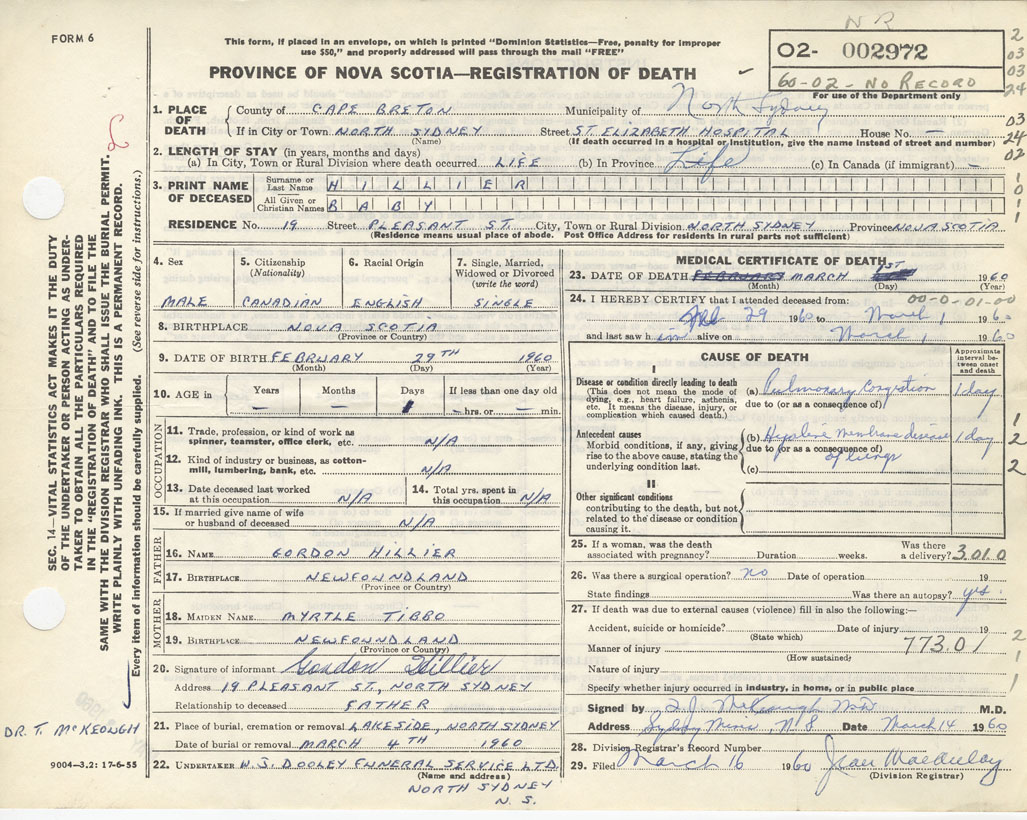 FORM 6
NR
This form, if placed in an envelope, on which is printed "Dominion Statistics—Free, penalty for improper
use $50," and properly addressed will pass through the mail "FREE"
PROVINCE OF NOVA SCOTIA—REGISTRATION OF DEATH
02- 002972
60-02 - NO RECORD
For use of the Department only
2
03
03
24
03
24
02
1. PLACE OF DEATH
County of CAPE BRETON Municipality of North Sydney
If in City or Town NORTH SYDNEY Street ST. ELIZABETH HOSPITAL House No. —
(Name) (If death occurred in a hospital or institution, give the name instead of street and number)
2. LENGTH OF STAY (in years, months and days)
(a) In City, Town or Rural Division where death occurred LIFE (b) In Province Life (c) In Canada (if immigrant) —
3. PRINT NAME OF DECEASED
Surname or Last Name HILLIER
All Given or Christian Names BABY
1
0
1
1
RESIDENCE No. 19 Street PLEASANT ST. City, Town or Rural Division NORTH SYDNEY Province NOVA SCOTIA
(Residence means usual place of abode. Post Office Address for residents in rural parts not sufficient)
4. Sex
MALE
5. Citizenship
(Nationality)
CANADIAN
6. Racial Origin
ENGLISH
7. Single, Married,
Widowed or Divorced
(write the word)
SINGLE
8. BIRTHPLACE NOVA SCOTIA
(Province or Country)
9. DATE OF BIRTH FEBRUARY 29TH 1960
(Month) (Day) (Year)
10. AGE in Years — Months — Days 1 If less than one day old
— hrs. or — min.
OCCUPATION
11. Trade, profession, or kind of work as
spinner, teamster, office clerk, etc. N/A
12. Kind of industry or business, as cotton-
mill, lumbering, bank, etc. N/A
13. Date deceased last worked
at this occupation N/A
14. Total yrs. spent in
this occupation N/A
15. If married give name of wife
or husband of deceased N/A
FATHER
16. NAME GORDON HILLIER
17. BIRTHPLACE NEWFOUNDLAND
(Province or Country)
MOTHER
18. MAIDEN NAME MYRTLE TIBBO
19. BIRTHPLACE NEWFOUNDLAND
(Province or Country)
20. Signature of informant Gordon Hillier
Address 19 PLEASANT ST., NORTH SYDNEY
Relationship to deceased FATHER
21. Place of burial, cremation or removal LAKESIDE, NORTH SYDNEY
Date of burial or removal MARCH 4TH 1960
22. UNDERTAKER W. J. DOOLEY FUNERAL SERVICE LTD
(Name and address)
NORTH SYDNEY
N. S.
MEDICAL CERTIFICATE OF DEATH
23. DATE OF DEATH FEBRUARY MARCH 1ST 1960
(Month) (Day) (Year)
24. I HEREBY CERTIFY that I attended deceased from: 00-0-01-00
Feb 29 1960 to March 1 1960
and last saw him alive on March 1 1960
CAUSE OF DEATH
Approximate
interval be-
tween onset
and death
I
Disease or condition directly leading to death
(This does not mean the mode of
dying, e.g., heart failure, asthenia,
etc. It means the disease, injury, or
complication which caused death.)
(a) Pulmonary Congestion 1 day
due to (or as a consequence of)
Antecedent causes
Morbid conditions, if any, giving
rise to the above cause, stating the
underlying condition last.
(b) Hyaline membrane disease 1 day
due to (or as a consequence of)
of lungs
(c)
II
Other significant conditions
contributing to the death, but not
related to the disease or condition
causing it.
1
2
2
25. If a woman, was the death
associated with pregnancy? Duration weeks. Was there
a delivery? 3010
26. Was there a surgical operation? no Date of operation 19
State findings Was there an autopsy? yes
27. If death was due to external causes (violence) fill in also the following:—
Accident, suicide or homicide? Date of injury 19
(State which)
Manner of injury 773.01
(How sustained)
Nature of injury
Specify whether injury occurred in industry, in home, or in public place
2
1
1
Signed by T. J. McKeough M.D. M.D.
Address Sydney Mines, N.S. Date March 14 1960
28. Division Registrar's Record Number
29. Filed March 16 1960 Jean
(Division Registrar)
SEC. 14—VITAL STATISTICS ACT MAKES IT THE DUTY
OF THE UNDERTAKER OR PERSON ACTING AS UNDER-
TAKER TO OBTAIN ALL THE PARTICULARS REQUIRED
IN THE "REGISTRATION OF DEATH" AND TO FILE THE
SAME WITH THE DIVISION REGISTRAR WHO SHALL ISSUE THE BURIAL PERMIT.
WRITE PLAINLY WITH UNFADING INK. THIS IS A PERMANENT RECORD.
Every item of information should be carefully supplied. (See reverse side for instructions.)
DR. T. McKEOUGH
9004—3.2: 17-6-55